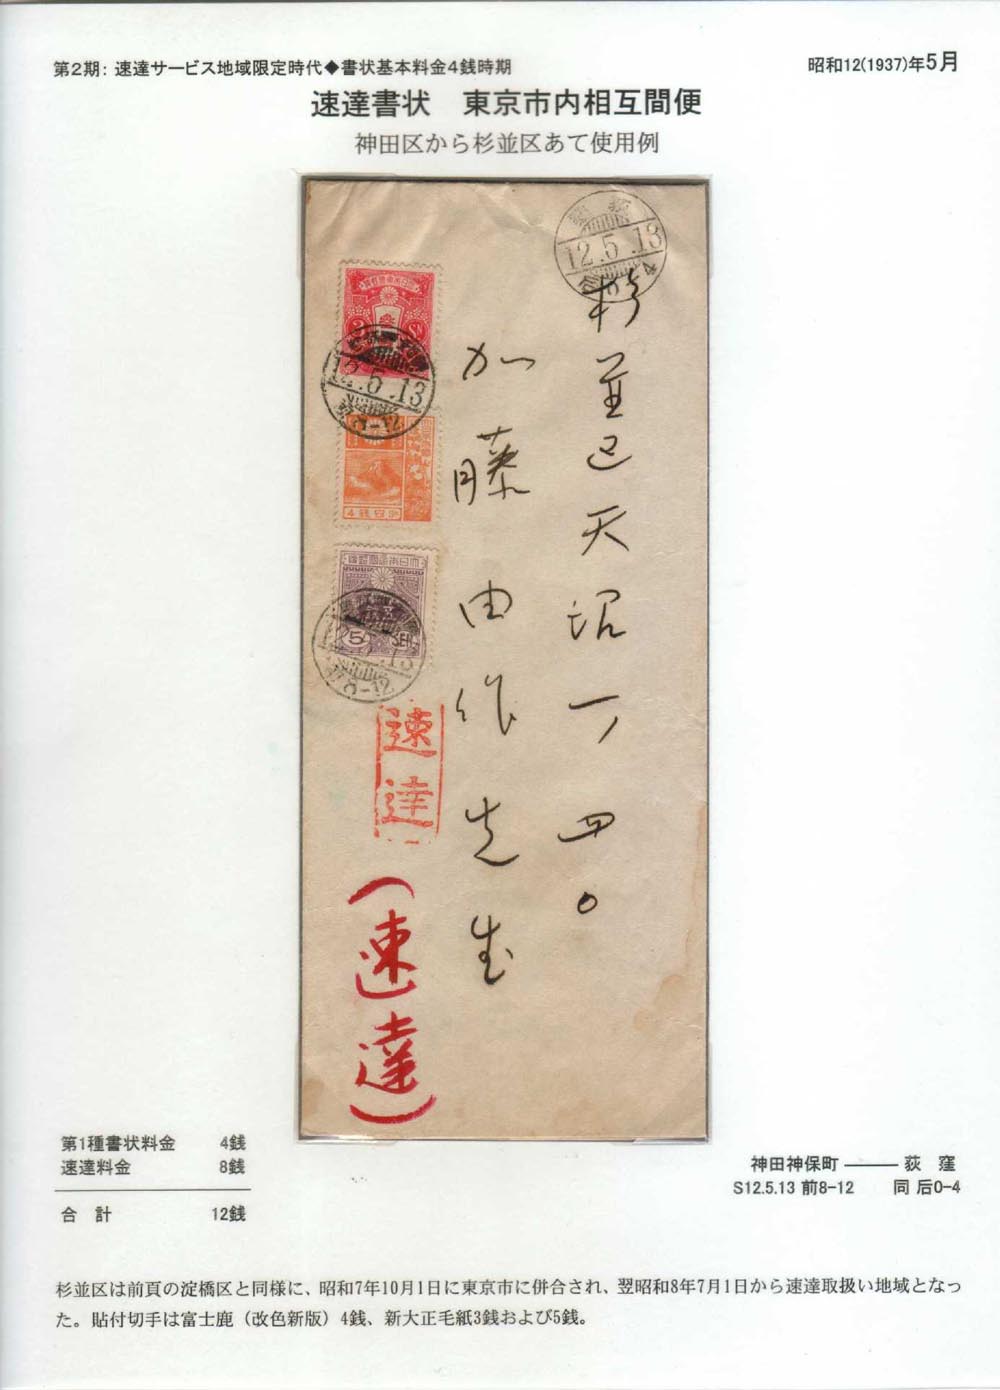 第2期：速達サービス地域限定時代◆書状基本料金4銭時期
昭和12(1937)年5月
速達書状　東京市内相互間便
神田区から杉並区あて使用例
12.5.13
杉並区天沼一ノ四〇
加藤由作先生
12.5.13
8-12
4銭四
5
SEN
8-12
速達
(速達)
第1種書状料金　4銭
速達料金　8銭
合　計　12銭
神田神保町 ――― 荻　窪
S12.5.13 前8-12　同 后0-4
杉並区は前頁の淀橋区と同様に、昭和7年10月1日に東京市に併合され、翌昭和8年7月1日から速達取扱い地域となっ
た。貼付切手は富士鹿（改色新版）4銭、新大正毛紙3銭および5銭。